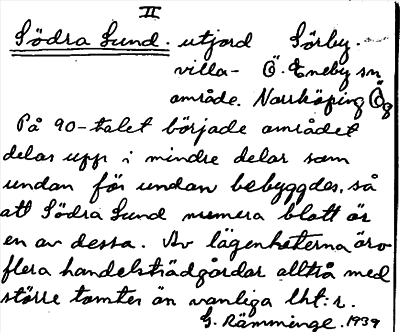 II
Södra Lund. utjord Sörby.
villa- Ö. Eneby sn
område. Norrköping Ög
På 90-talet började området
delas upp i mindre delar som
undan för undan bebyggdes, så
att Södra Lund numera blott är
en av dessa. Av lägenheterna äro
flera handelsträdgårdar alltså med
större tomter än vanliga lht:r.
G. Rämminge. 1939